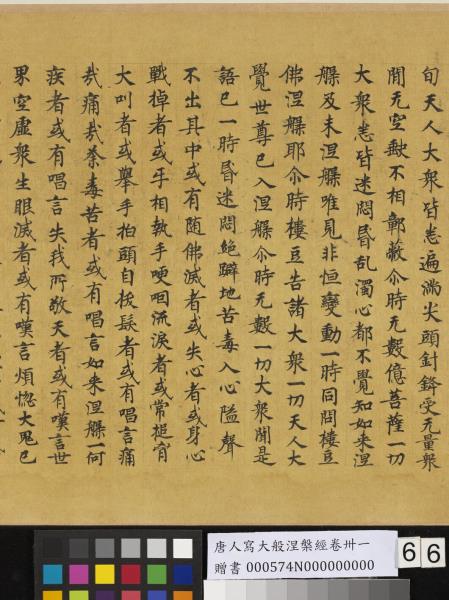 旬天人大衆皆悉遍滿尖頭針鋒受无量衆
間无空缺不相鄣蔽尒時无數億菩薩一切
大衆悉皆迷悶昏乱濁心都不覺知如来涅
槃及未涅槃唯見非恒變動一時同問樓豆
佛涅槃耶尒時樓豆告諸大衆一切天人大
覺世尊已入涅槃尒時无數一切大衆聞是
語已一時昏迷悶絶躃地苦毒入心隘聲
不出其中或有随佛滅者或失心者或身心
戰掉者或㸦相執手哽咽流淚者或常搥胷
大叫者或舉手拍頭自拔髮者或有唱言痛
哉痛哉荼毒苦者或有唱言如来涅槃一何
疾者或有唱言失我所敬天者或有嘆言世
界空虚衆生眼滅者或有嘆言煩惱大鬼已
唐人寫大般涅槃經卷卅一
贈書 000574N000000000
6 6